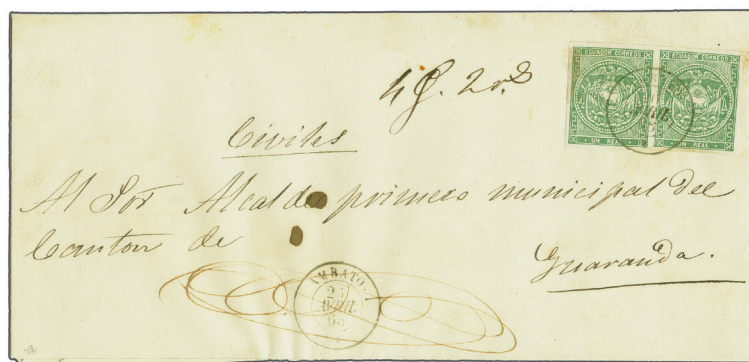 ECUADOR CORREOS ECUADOR CORREOS
UN REAL UN REAL
2 rs
Civiles
Al Sor Alcalde primero municipal del
Canton de
Guaranda.
AMBATO
25
AVRIL